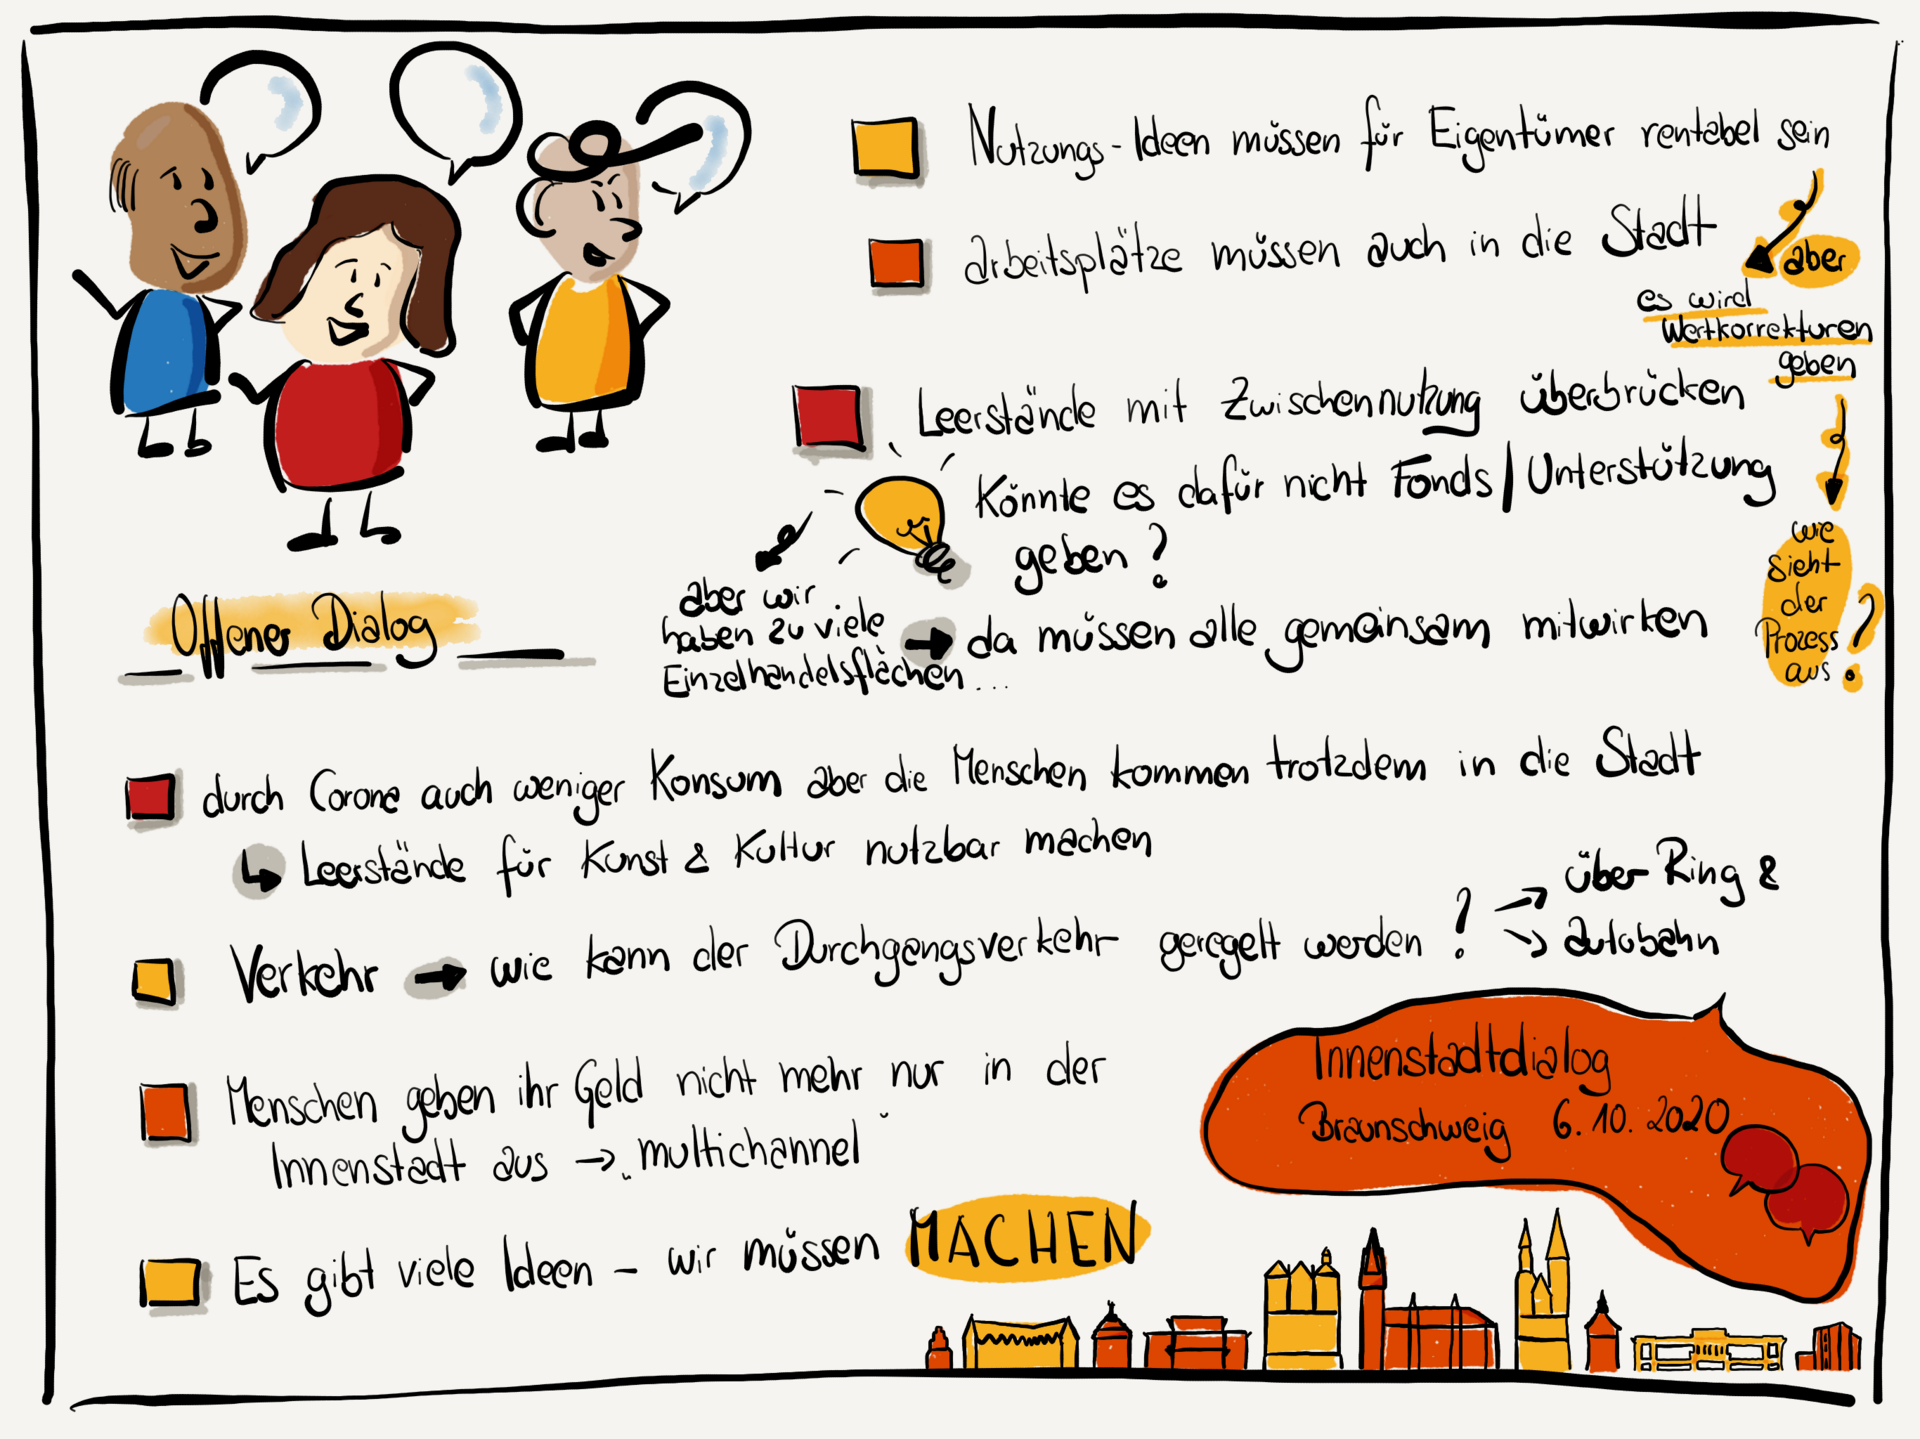 Nutzungs-Ideen müssen für Eigentümer rentabel sein
Arbeitsplätze müssen auch in die Stadt
aber
es wird
Wertkorrekturen
geben
wie
sieht
der
Prozess
aus ?
Leerstände mit Zwischennutzung überbrücken
Könnte es dafür nicht Fonds/Unterstützung
geben ?
aber wir
haben zu viele
Einzelhandelsflächen...
→ da müssen alle gemeinsam mitwirken
Offener Dialog
durch Corona auch weniger Konsum aber die Menschen kommen trotzdem in die Stadt
↳ Leerstände für Kunst & Kultur nutzbar machen
Verkehr → wie kann der Durchgangsverkehr geregelt werden ?
→ über Ring &
→ Autobahn
Menschen geben ihr Geld nicht mehr nur in der
Innenstadt aus → „multichannel"
Es gibt viele Ideen - wir müssen MACHEN
Innenstadtdialog
Braunschweig 6.10.2020